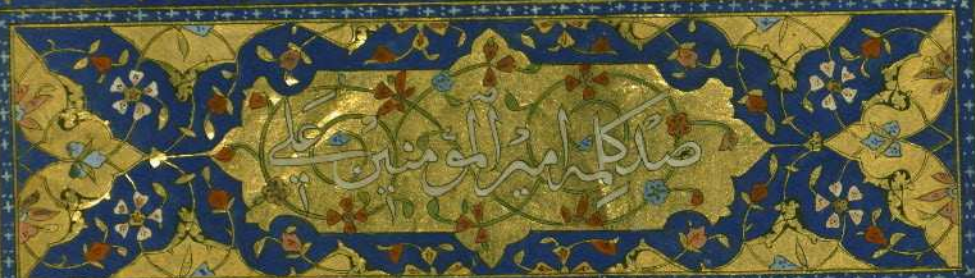 صد کلمه امیر المؤمنین علی